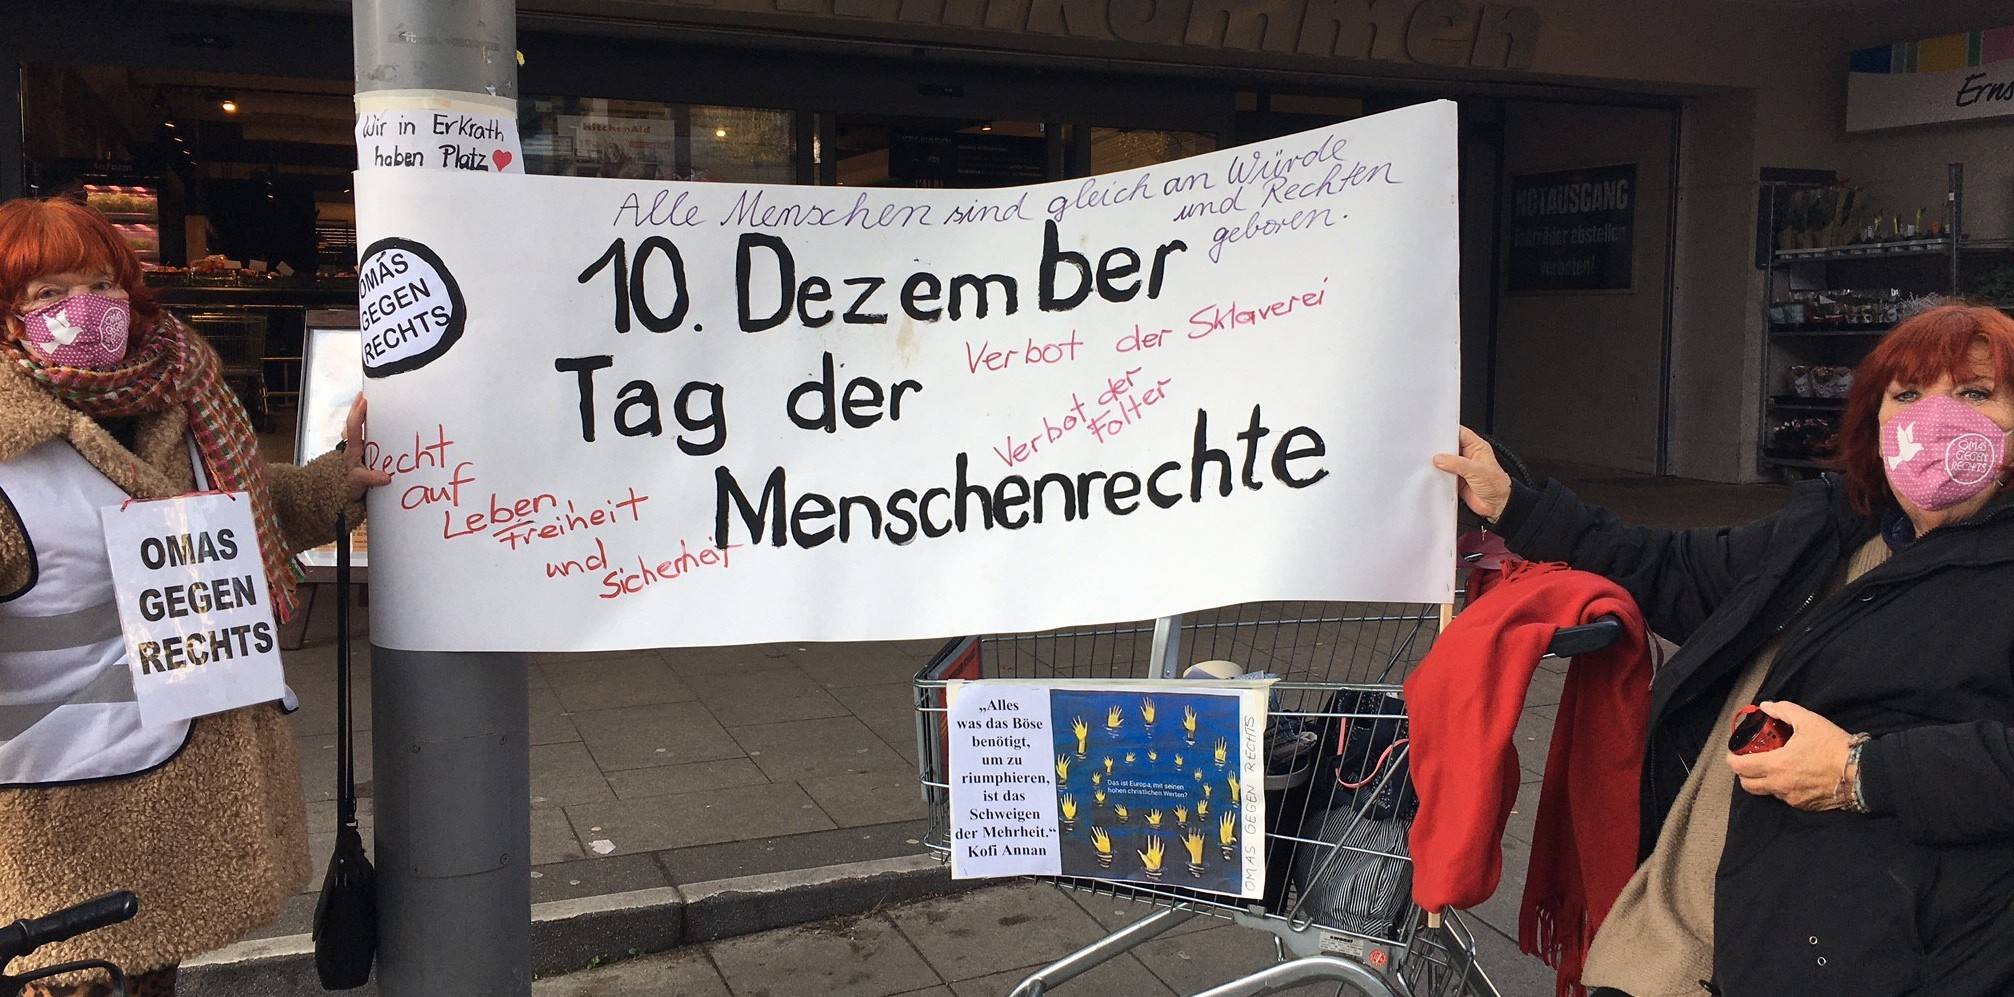 Wir in Erkrath
haben Platz
Alle Menschen sind gleich an Würde
und Rechten
geboren.
OMAS
GEGEN
RECHTS
10. Dezember
Tag der
Menschenrechte
Verbot der Sklaverei
Verbot der
Folter
Recht
auf
Leben,
Freiheit
und
Sicherheit
OMAS
GEGEN
RECHTS
„Alles
was das Böse
benötigt,
um zu
riumphieren,
ist das
Schweigen
der Mehrheit.“
Kofi Annan
Das ist Europa, mit seinen
hohen christlichen Werten?
OMAS GEGEN RECHTS
OMAS
GEGEN
RECHTS
KitchenAid
NOTAUSGANG
Fahrräder abstellen
verboten!
Erns